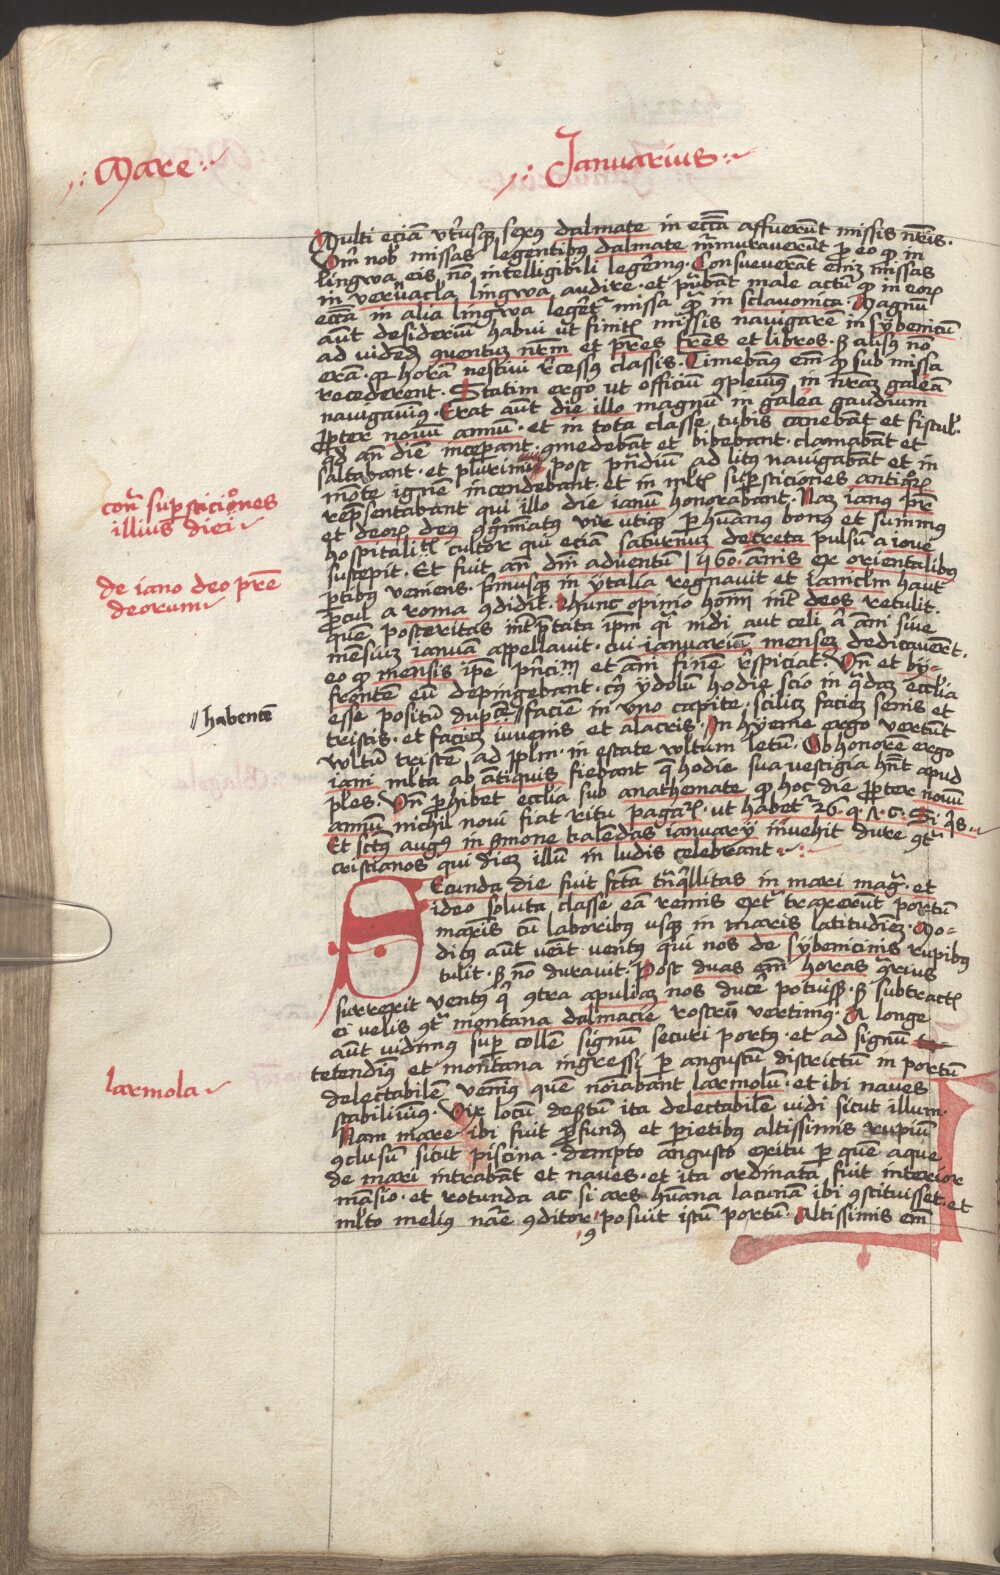 Mare
Januarius
Multi eciam utriusque sexus dalmate in ecclesia affuerunt missis nostris.
Unde nobis missas legentibus dalmate murmuraverunt pro eo quod in
lingwa eis non intelligibili legerimus. Consueverant enim missas
in vernacula lingwa audire. et putabant male actum quod in eorum
ecclesia in alia lingwa legeretur missa quam in sclavonica. Magnum
autem desiderium habui ut finitis missis navigarem in sybenicum
ad videndum conventum nostrum et patres fratres et libros. sed ausus non
eram. quia horam nescivi recessus classis. Timebamus enim quod sub missa
recederent. Statim ergo ut officium complevimus in nostram galeam
navigavimus. Erat autem die illo magnum in galea gaudium
propter novum annum. et in tota classe tubis canebant et fistulis.
quod ante diem inceperant. comedebant et bibebant. clamabant et
saltabant. et plurimi post prandium ad litus navigabant et in
monte ignem incendebant. et in multis supersticiones antiquorum
representabant qui illo die ianum honorabant. Nam ianus pater
et deorum deus cognominatus vir utique per humanus bonus et summus
hospitalitatis cultor qui eciam saturnum de creta pulsum a iove
suscepit. Et fuit ante domini adventum 1260. annis ex orientalibus
partibus veniens. primusque in ytalia regnavit et ianiculum haut
procul a roma condidit. Hunc opinio hominum inter deos retulit.
quem posteritas interpretata ipsum quasi mundi aut celi aut anni sive
mensium ianuam appellavit. cui ianuarium mensem dedicaverunt.
eo quod mensis ipse principium et anni finem respiciat. Unde et by-
frontem eum depingebant. cuius ydolum hodie scio in quadam ecclesia
esse positum duplicem // faciem in uno capite. scilicet faciem senis et
tristis. et faciem iuvenis et alacris. In hyeme ergo vertunt
vultum tristem ad populum. in estate vultum letum. Ob honore ergo
iani multa ab antiquis fiebant que hodie sua vestigia habent apud
plures. Unde prohibet ecclesia sub anathemate quod hoc die propter novum
annum nichil novi fiat ritu paganorum. ut habetur 26. q. 7. c. Si quis.
Et sanctus augustinus in sermone kalendas ianuarii invehit dure contra
cristianos qui diem illum in ludis celebrant
Secunda die fuit facta tranquillitas in mari magna. et
ideo soluta classe eam remis extra traxerunt portum
maris cum laboribus usque in maris latitudinem. Mo-
dicus autem venit ventus qui nos de sybenicinis rupibus
tulit. sed non duravit. Post duas enim horas contrarius
surrexit ventus qui contra apuliam nos ducere potuisset. sed subtractis
ei velis contra montana dalmacie rostrum vertimus. A longe
autem vidimus super collem signum securi portus. et ad signum
tetendimus et montana ingressi per angustum districtum in portum
delectabilem venimus quem nominabant larmolum. et ibi naves
stabilivimus. Vix locum desertum ita delectabilem vidi sicut illum.
Nam mare ibi fuit profundum et parietibus altissimis rupium
conclusum sicut piscina. dempto angusto exitu per quem aque
de mari intrabant et naves. et ita ordinata fuit interior
mansio. et rotunda ac si ars humana lacunam ibi constituisset. et
multo melius nature conditor posuit istum portum. Altissimis enim
contra supersticiones
illius diei
de iano deo patre
deorum
// habentem
larmola